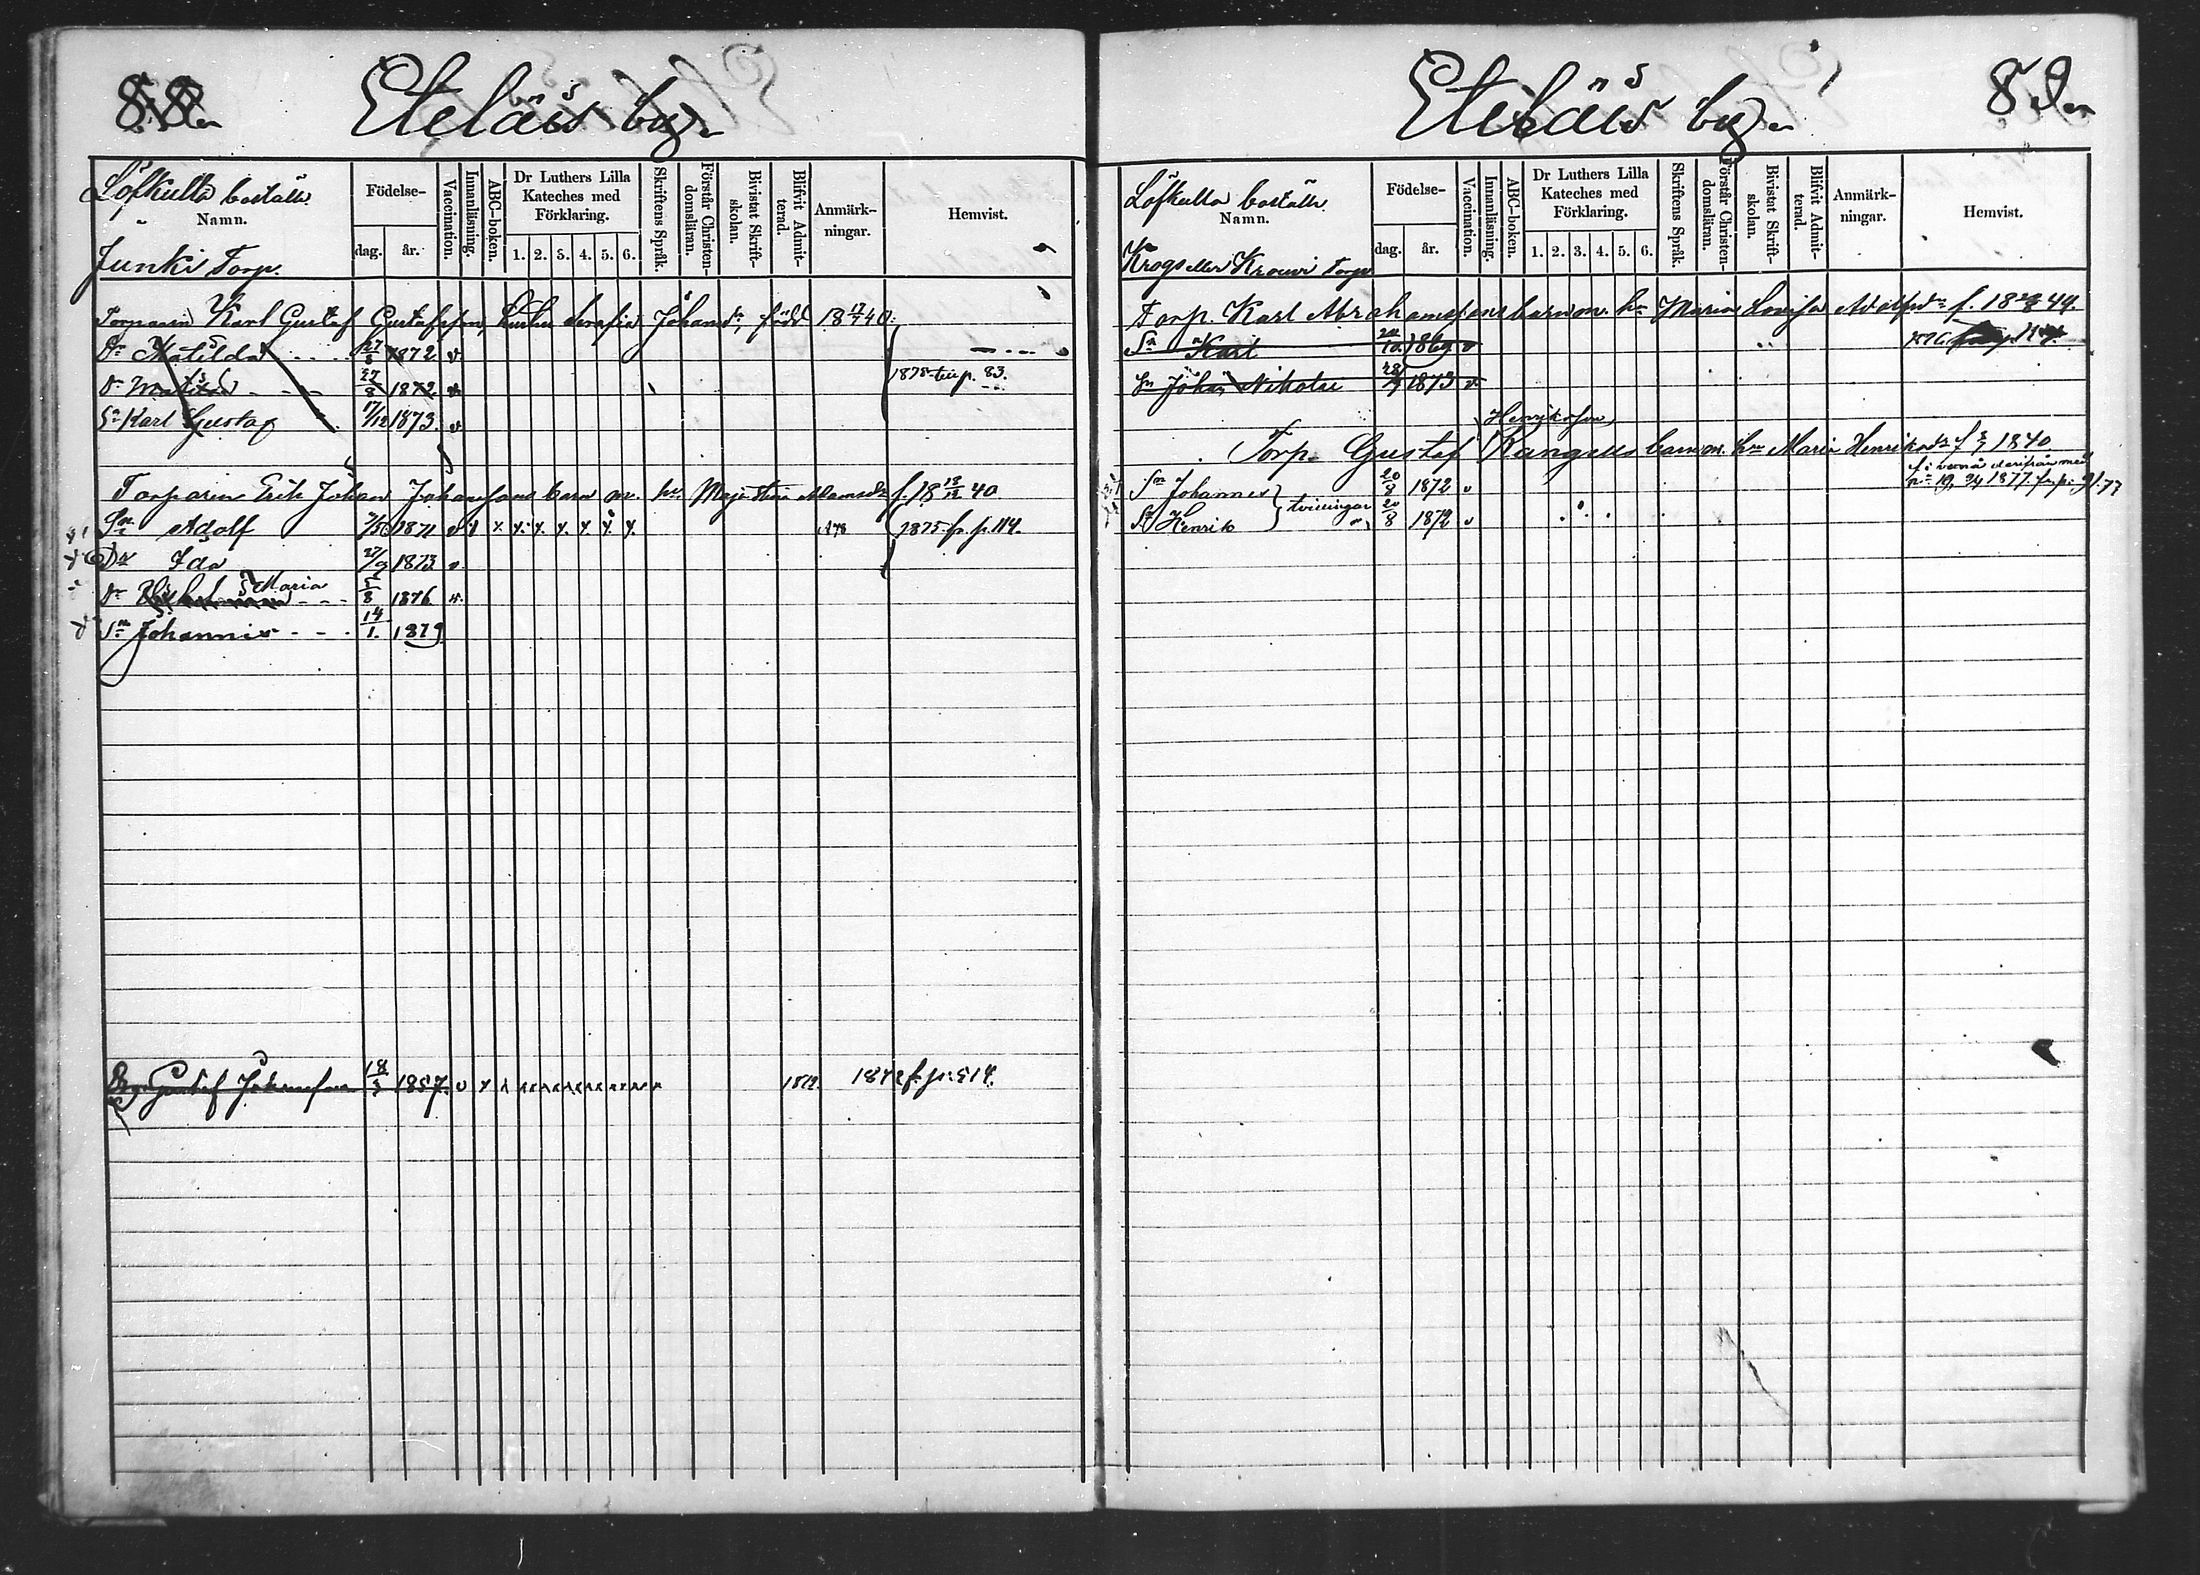 88.
Eteläis by.
Löfkulla boställe
Namn.
Födelse-
dag.
år.
Vaccination.
Innanläsning.
ABC-boken.
Dr Luthers Lilla
Kateches med
Förklaring.
1. 2. 3. 4. 5. 6.
Skriftens Språk.
Förstår Christen-
domsläran.
Bivistat Skrift-
skolan.
Blifvit Admit-
terad.
Anmärk-
ningar.
Hemvist.
Junki Torp.
Torparen Karl Gustaf Gustafsson, hustru Serafia Johansdr, född 18 17/7 40.
Dr Matilda 27/8 1872 v
Dr Matilda 27/8 1872 v 1875 p. 83.
Sn Karl Gustaf 17/12 1873. v
Torparen Erik Johan Johanssons barn m. hu Maja Stina Adamsdr f. 18 18/12 40
Sn Adolf 1871 v x x x. x. x. x. x. x. 1875 fr. p. 114.
Dr Ida 27/9 1873 v.
Dr Maria 5/8 1876 v.
Sn Johannes 14/1. 1879
Gustaf Johansson 18/3 1857. v x x 187 fr. p. 514.
89.
Eteläis by.
Löfkulla boställe
Namn.
Födelse-
dag.
år.
Vaccination.
Innanläsning.
ABC-boken.
Dr Luthers Lilla
Kateches med
Förklaring.
1. 2. 3. 4. 5. 6.
Skriftens Språk.
Förstår Christen-
domsläran.
Bivistat Skrift-
skolan.
Blifvit Admit-
terad.
Anmärk-
ningar.
Hemvist.
Krogs eller Krouvi Torp
Torp. Karl Abrahamssons barn m. hu Maria Lovisa Adolfsdr f. 18 44.
Sn Karl 1869 v 1876
Sn Johan Nikolai 28 1873 v
Henriksson
Torp. Gustaf Kangells barn m. hu Maria Henriksdr f. 1840
Sn Johannes 20/8 1872 v derifrån med
tvillingar n 19, 24 1877. fr. p.
Sn Henrik 20/8 1872 v